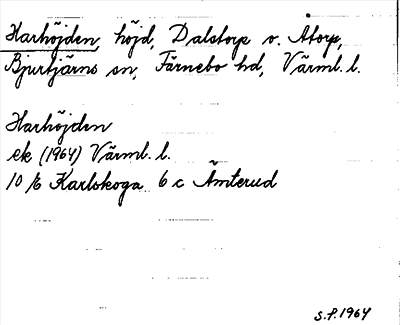 Harhöjden, höjd, Dalstorp o. Åtorp,
Bjurtjärns sn, Färnebo hd, Värml. l.
Harhöjden
ek (1964) Värml. l.
10 E Karlskoga 6 c Ämterud
S.F. 1964